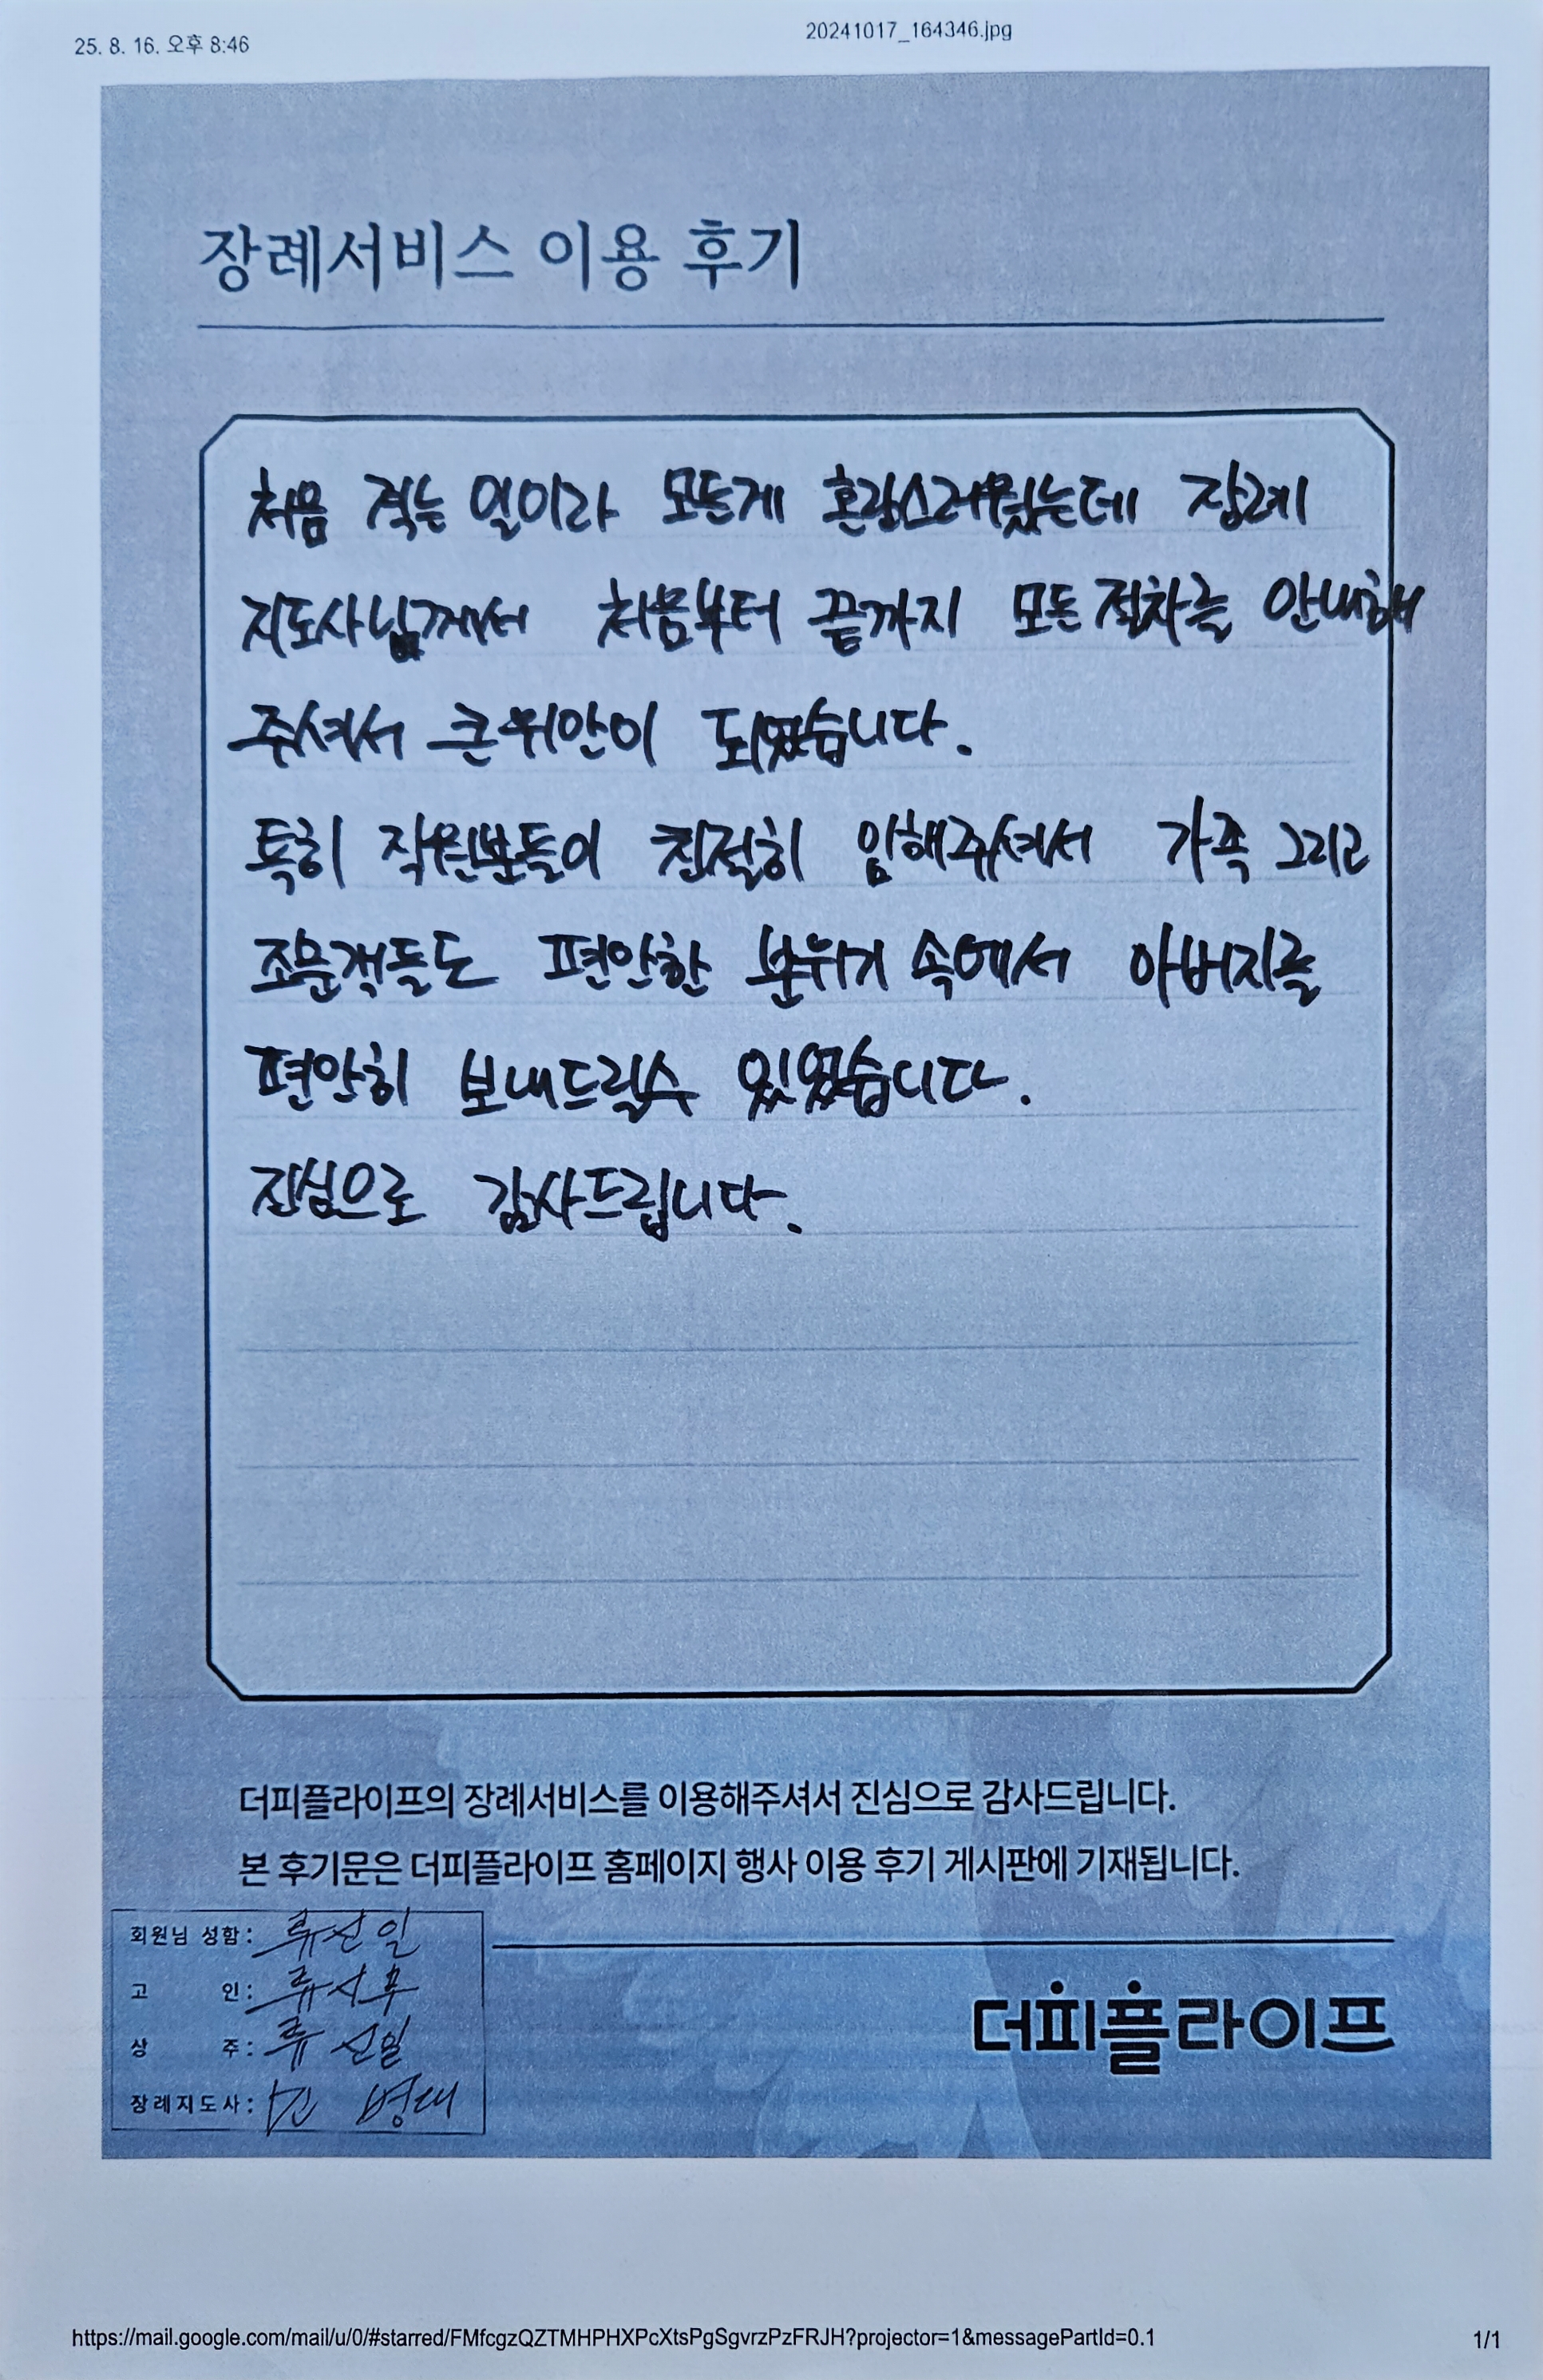 25. 8. 16. 오후 8:46
20241017_164346.jpg
장례서비스 이용 후기
처음 겪는 일이라 모든게 혼랑스러웠는데 장례
지도사님께서 처음부터 끝까지 모든 절차를 안내해
주셔서 큰 위안이 되었습니다.
특히 직원분들이 친절히 임해주셔서 가족 그리고
조문객들도 편안한 분위기 속에서 아버지를
편안히 보내드릴수 있었습니다.
진심으로 감사드립니다.
더피플라이프의 장례서비스를 이용해주셔서 진심으로 감사드립니다.
본 후기문은 더피플라이프 홈페이지 행사 이용 후기 게시판에 기재됩니다.
회원님 성함: 류선일
고 인: 류
상 주: 류선일
장례지도사: 병대
더피플라이프
https://mail.google.com/mail/u/0/#starred/FMfcgzQZTMHPHXPcXtsPgSgvrzPzFRJH?projector=1&messagePartId=0.1
1/1